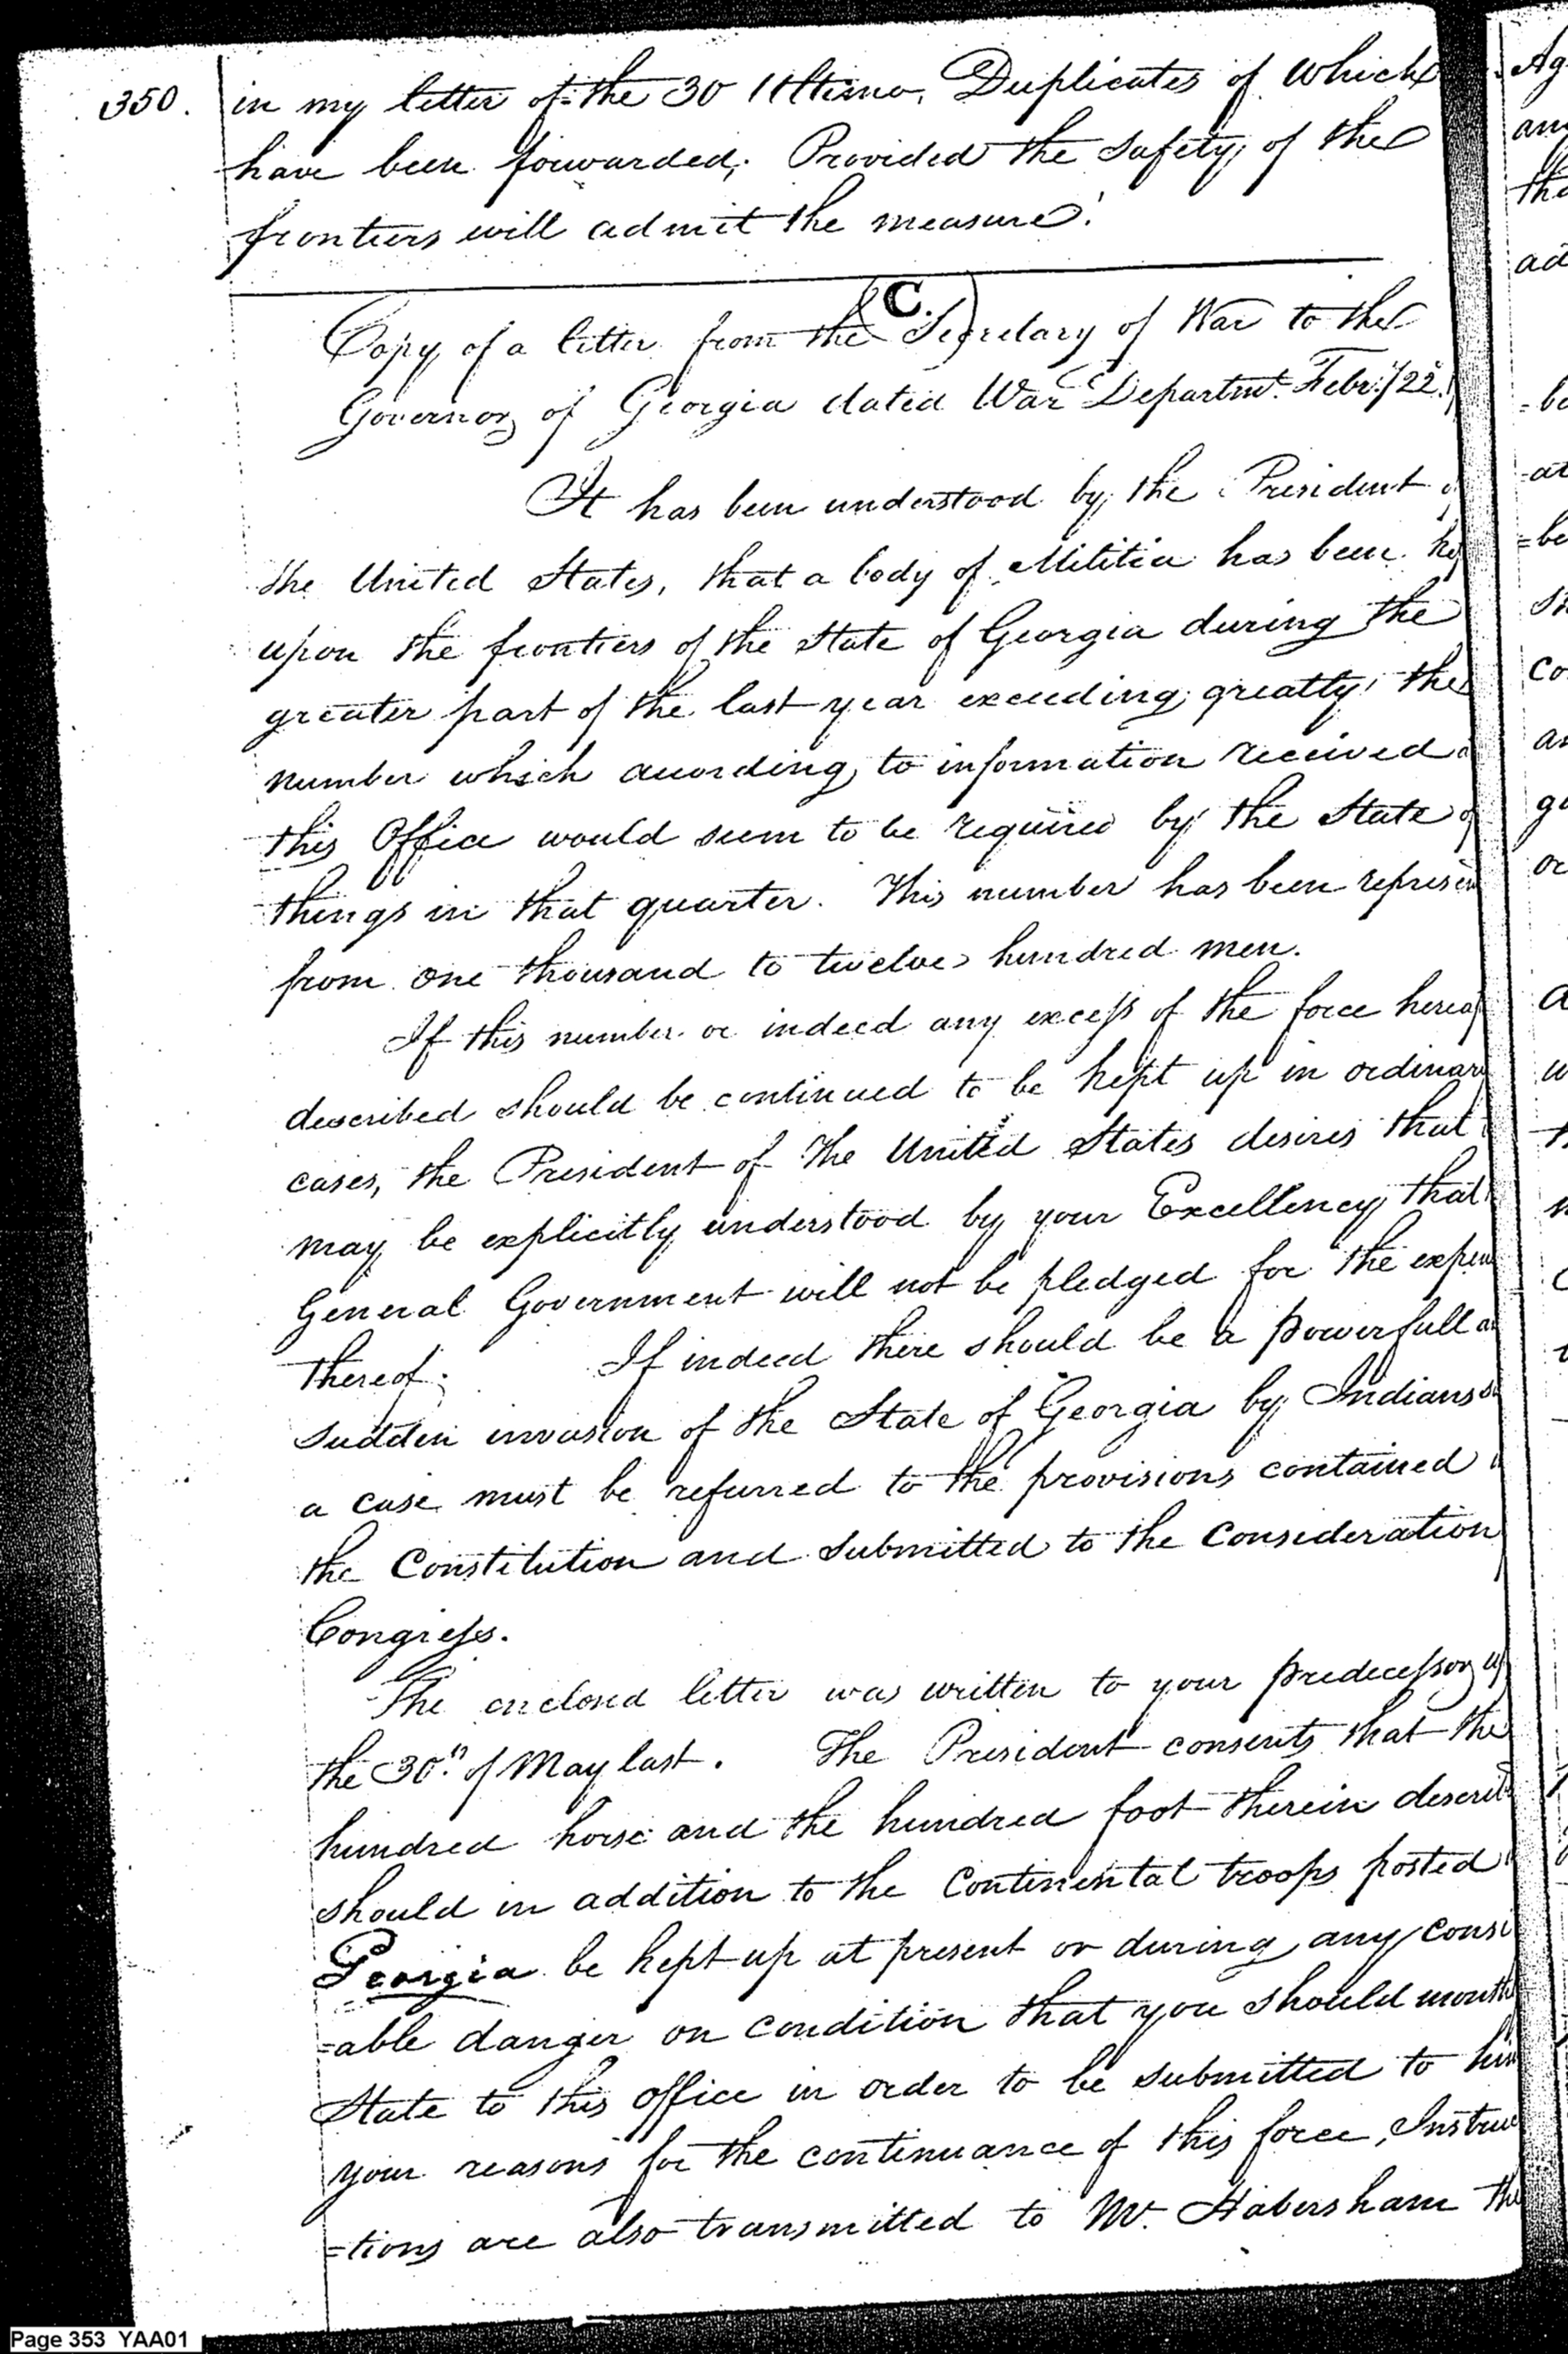 350.
in my letter of the 30 Ultimo, Duplicates of which
have been forwarded; Provided the Safety of the
frontiers will admit the measure.
(C.)
Copy of a letter from the Secretary of War to the
Governor of Georgia dated War Departmt. Febr:y 22.
It has been understood by the President
the United States, that a body of Militia has been
upon the frontiers of the State of Georgia during the
greater part of the last year exceeding greatly the
number which according to information received
this Office would seem to be required by the State of
things in that quarter. This number has been represen
from one thousand to twelve hundred men.
If this number or indeed any excess of the force hereaf
described should be continued to be kept up in ordinary
cases, the President of the United States desires that
may be explicitly understood by your Excellency that
General Government will not be pledged for the expen
thereof. If indeed there should be a powerfull a
sudden invasion of the State of Georgia by Indians
a case must be referred to the provisions contained
the Constitution and submitted to the Consideration
Congress.
The enclosed letter was written to your predecessor
the 30th of May last. The President consents that the
hundred horse and the hundred foot therein describ
should in addition to the Continental troops posted
Georgia be kept up at present or during any consi
=able danger on condition that you should month
State to this office in order to be submitted to him
your reasons for the continuance of this force, Instruc
=tions are also transmitted to Mr. Habersham the
Page 353 YAA01